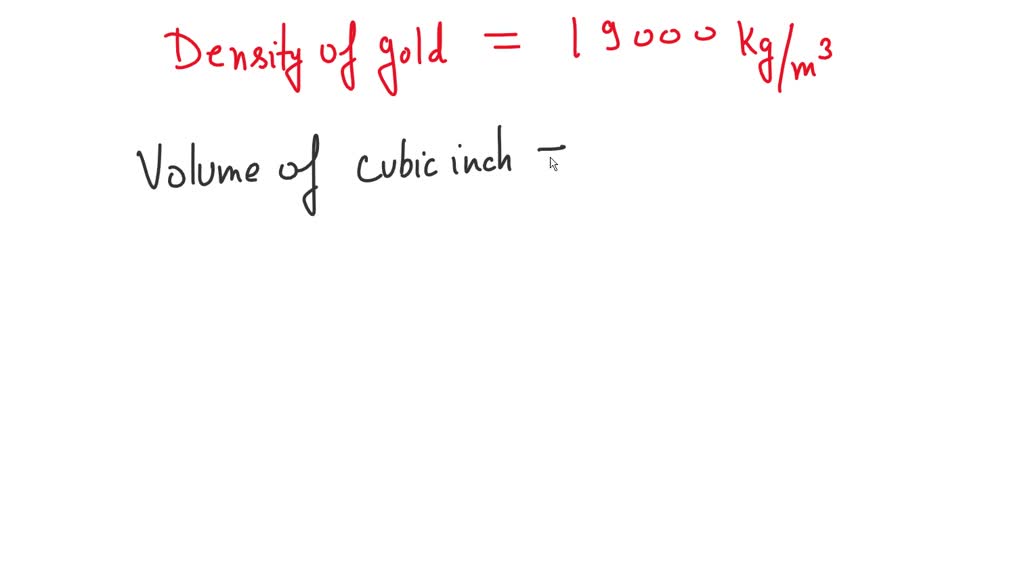 Density of gold = 19000 kg/m³
Volume of cubic inch =